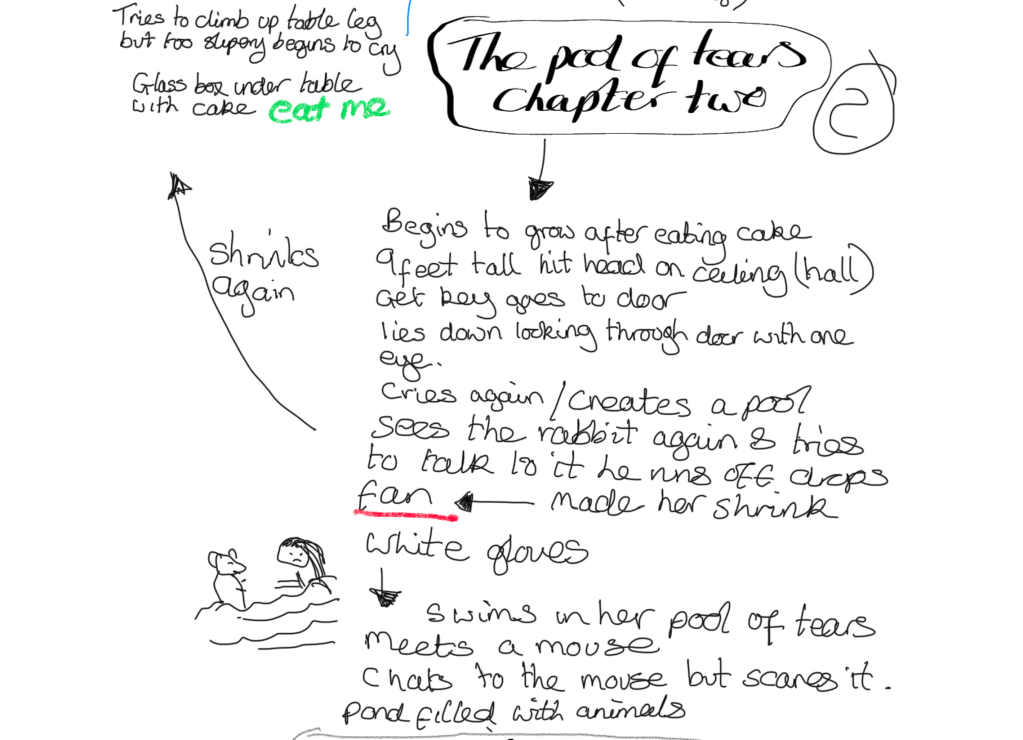 Tries to climb up table leg
but too slipery begins to cry
Glass box under table
with cake eat me
The pool of tears
chapter two
2
Begins to grow after eating cake
9 feet tall hit head on ceiling (hall)
Get key goes to door
lies down looking through door with one
eye..
Cries again / creates a pool
sees the rabbit again & tries
to talk to it he runs off drops
fan ← made her shrink
white gloves
shrinks
again
Swims in her pool of tears
Meets a mouse
Chats to the mouse but scares it.
pond filled with animals